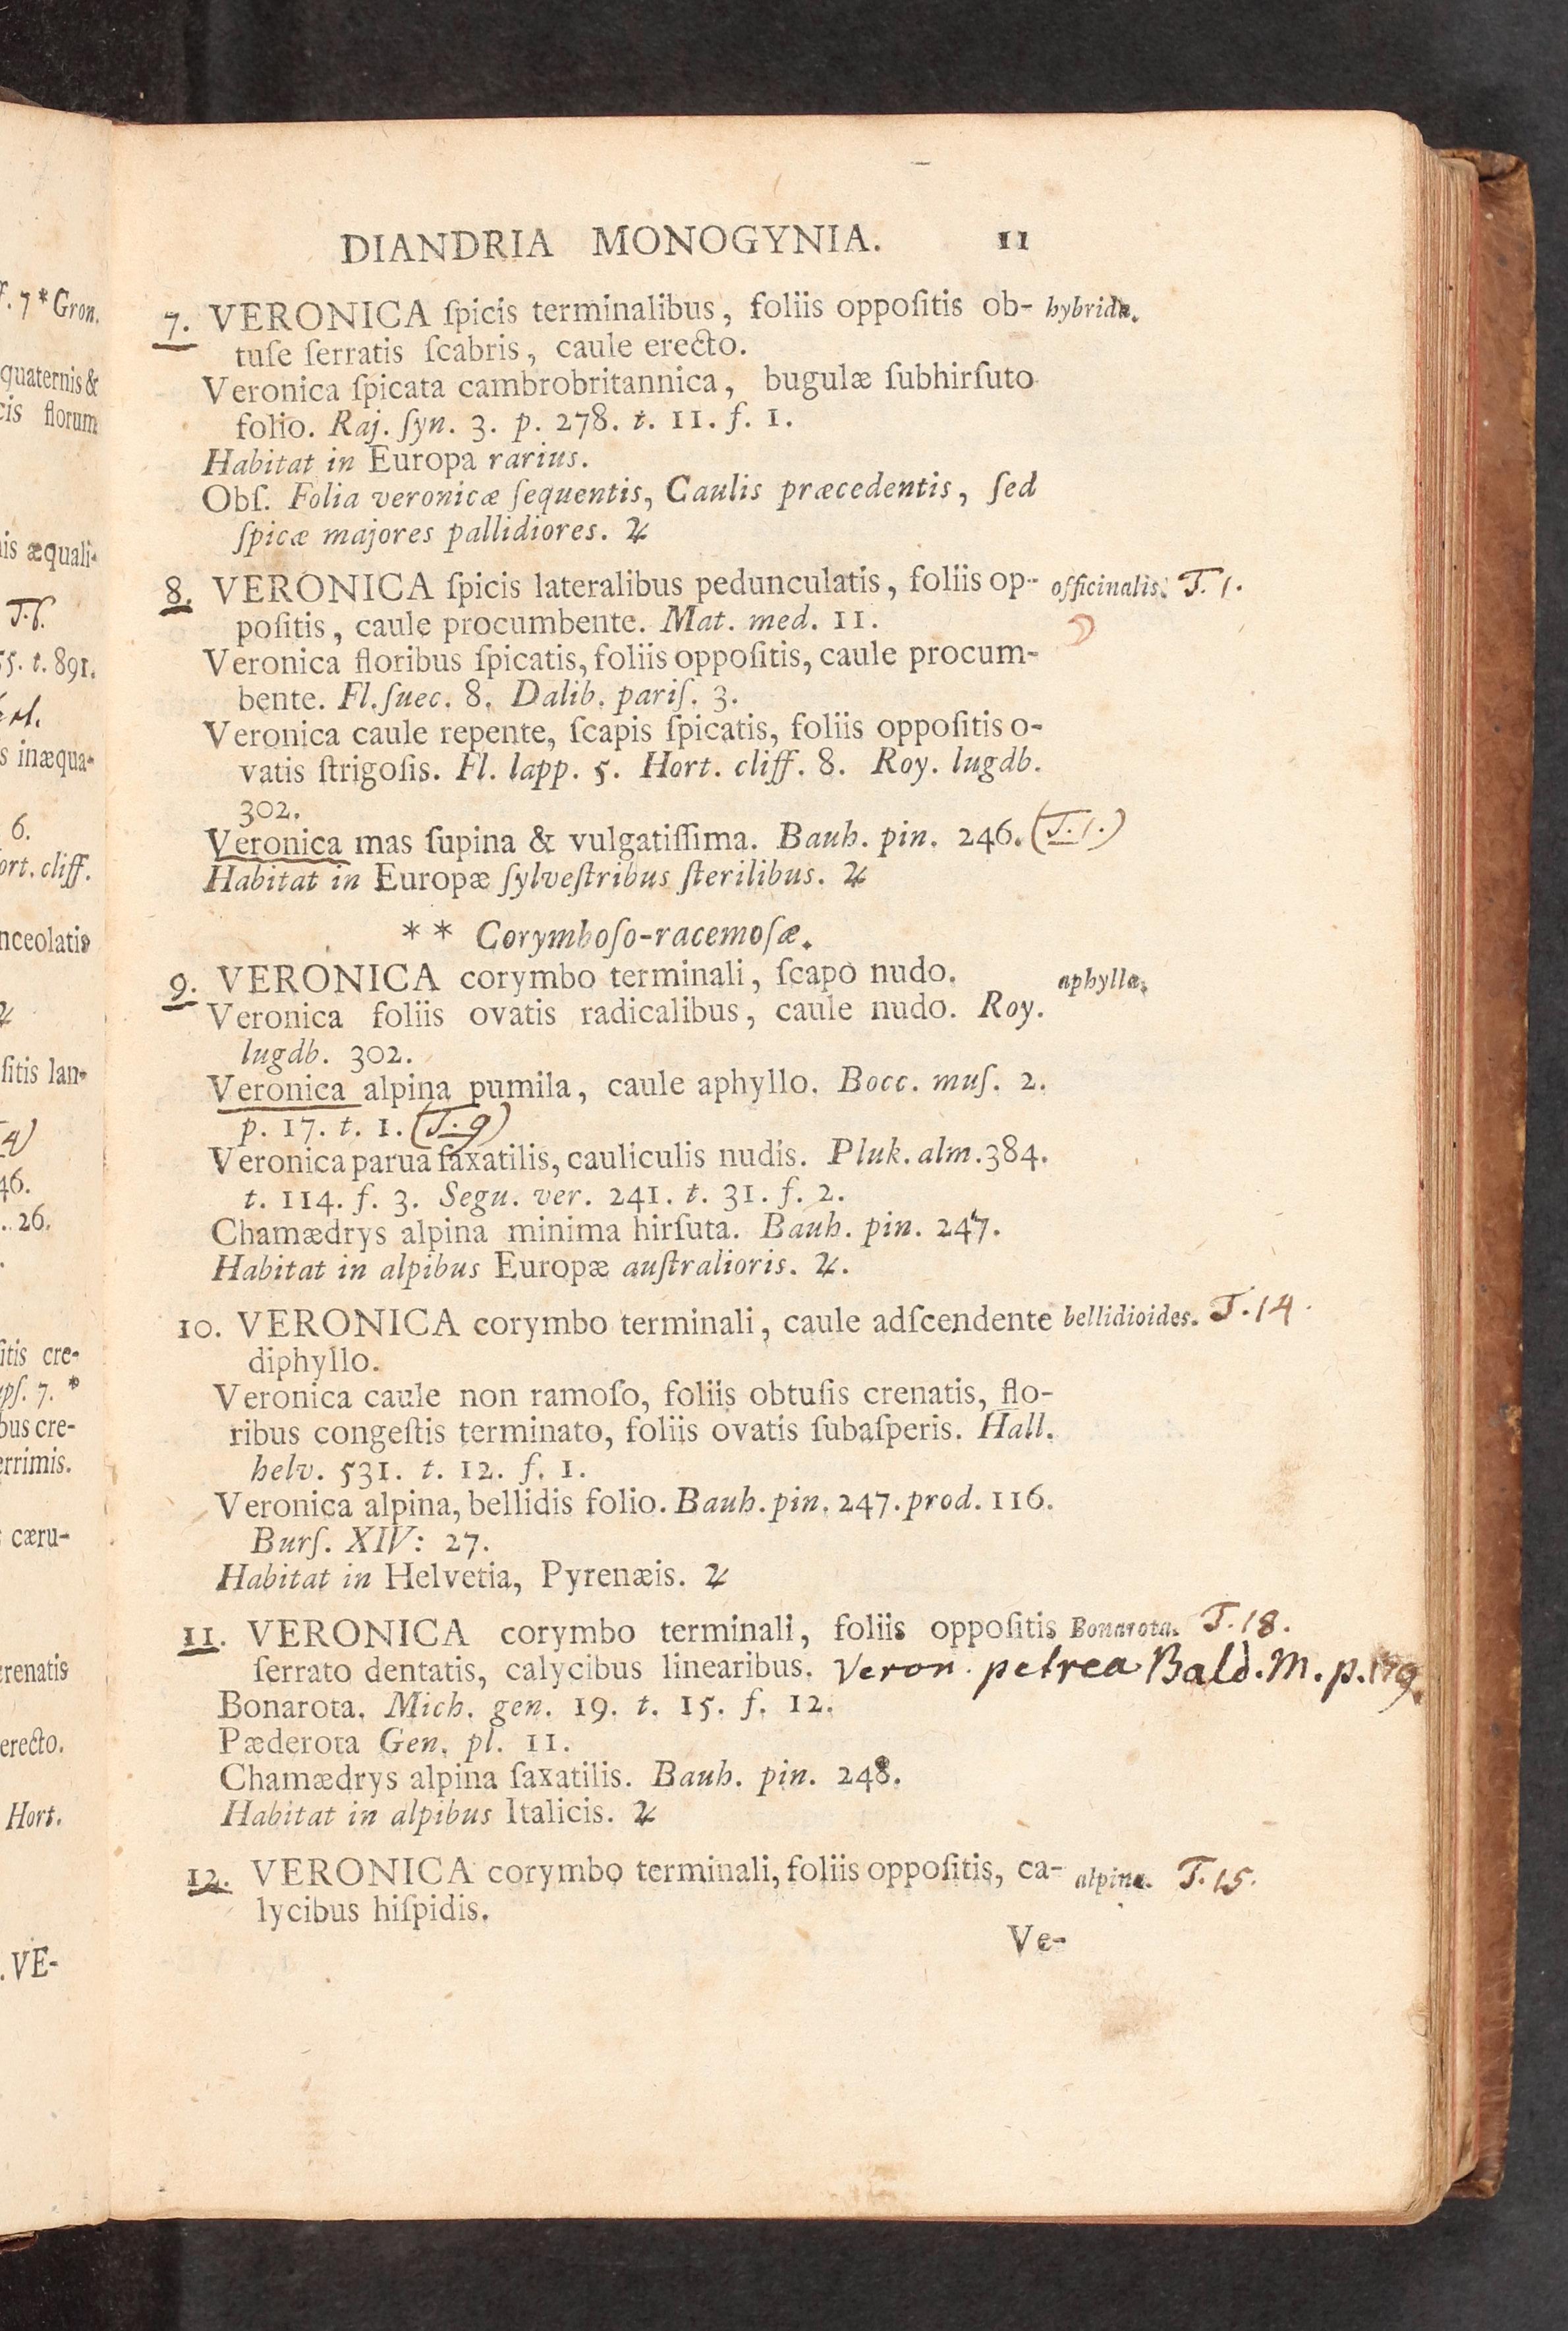 DIANDRIA MONOGYNIA. 11
7. VERONICA ſpicis terminalibus, foliis oppoſitis ob- hybrida.
tuſe ſerratis ſcabris, caule erecto.
Veronica ſpicata cambrobritannica, bugulæ ſubhirſuto
folio. Raj. ſyn. 3. p. 278. t. 11. f. 1.
Habitat in Europa rarius.
Obſ. Folia veronicæ ſequentis, Caulis præcedentis, ſed
ſpicæ majores pallidiores. ♃
8. VERONICA ſpicis lateralibus pedunculatis, foliis op- officinalis. T. 1.
poſitis, caule procumbente. Mat. med. 11.
Veronica floribus ſpicatis, foliis oppoſitis, caule procum-
bente. Fl. ſuec. 8. Dalib. pariſ. 3.
Veronica caule repente, ſcapis ſpicatis, foliis oppoſitis o-
vatis ſtrigoſis. Fl. lapp. 5. Hort. cliff. 8. Roy. lugdb.
302.
Veronica mas ſupina & vulgatiſſima. Bauh. pin. 246. (T. 1.)
Habitat in Europæ ſylveſtribus ſterilibus. ♃
* * Corymboſo-racemoſæ.
9. VERONICA corymbo terminali, ſcapo nudo. aphylla.
Veronica foliis ovatis radicalibus, caule nudo. Roy.
lugdb. 302.
Veronica alpina pumila, caule aphyllo. Bocc. muſ. 2.
p. 17. t. 1. (T. 9)
Veronica parua ſaxatilis, cauliculis nudis. Pluk. alm. 384.
t. 114. f. 3. Segu. ver. 241. t. 31. f. 2.
Chamædrys alpina minima hirſuta. Bauh. pin. 247.
Habitat in alpibus Europæ auſtralioris. ♃.
10. VERONICA corymbo terminali, caule adſcendente bellidioides. T. 14.
diphyllo.
Veronica caule non ramoſo, foliis obtuſis crenatis, flo-
ribus congeſtis terminato, foliis ovatis ſubaſperis. Hall.
helv. 531. t. 12. f. 1.
Veronica alpina, bellidis folio. Bauh. pin. 247. prod. 116.
Burſ. XIV: 27.
Habitat in Helvetia, Pyrenæis. ♃
11. VERONICA corymbo terminali, foliis oppoſitis Bonarota. T. 18.
ſerrato dentatis, calycibus linearibus. Veron. petrea Bald. M. p.
Bonarota. Mich. gen. 19. t. 15. f. 12.
Pæderota Gen. pl. 11.
Chamædrys alpina ſaxatilis. Bauh. pin. 248.
Habitat in alpibus Italicis. ♃
12. VERONICA corymbo terminali, foliis oppoſitis, ca- alpina. T. 15.
lycibus hiſpidis.
Ve-